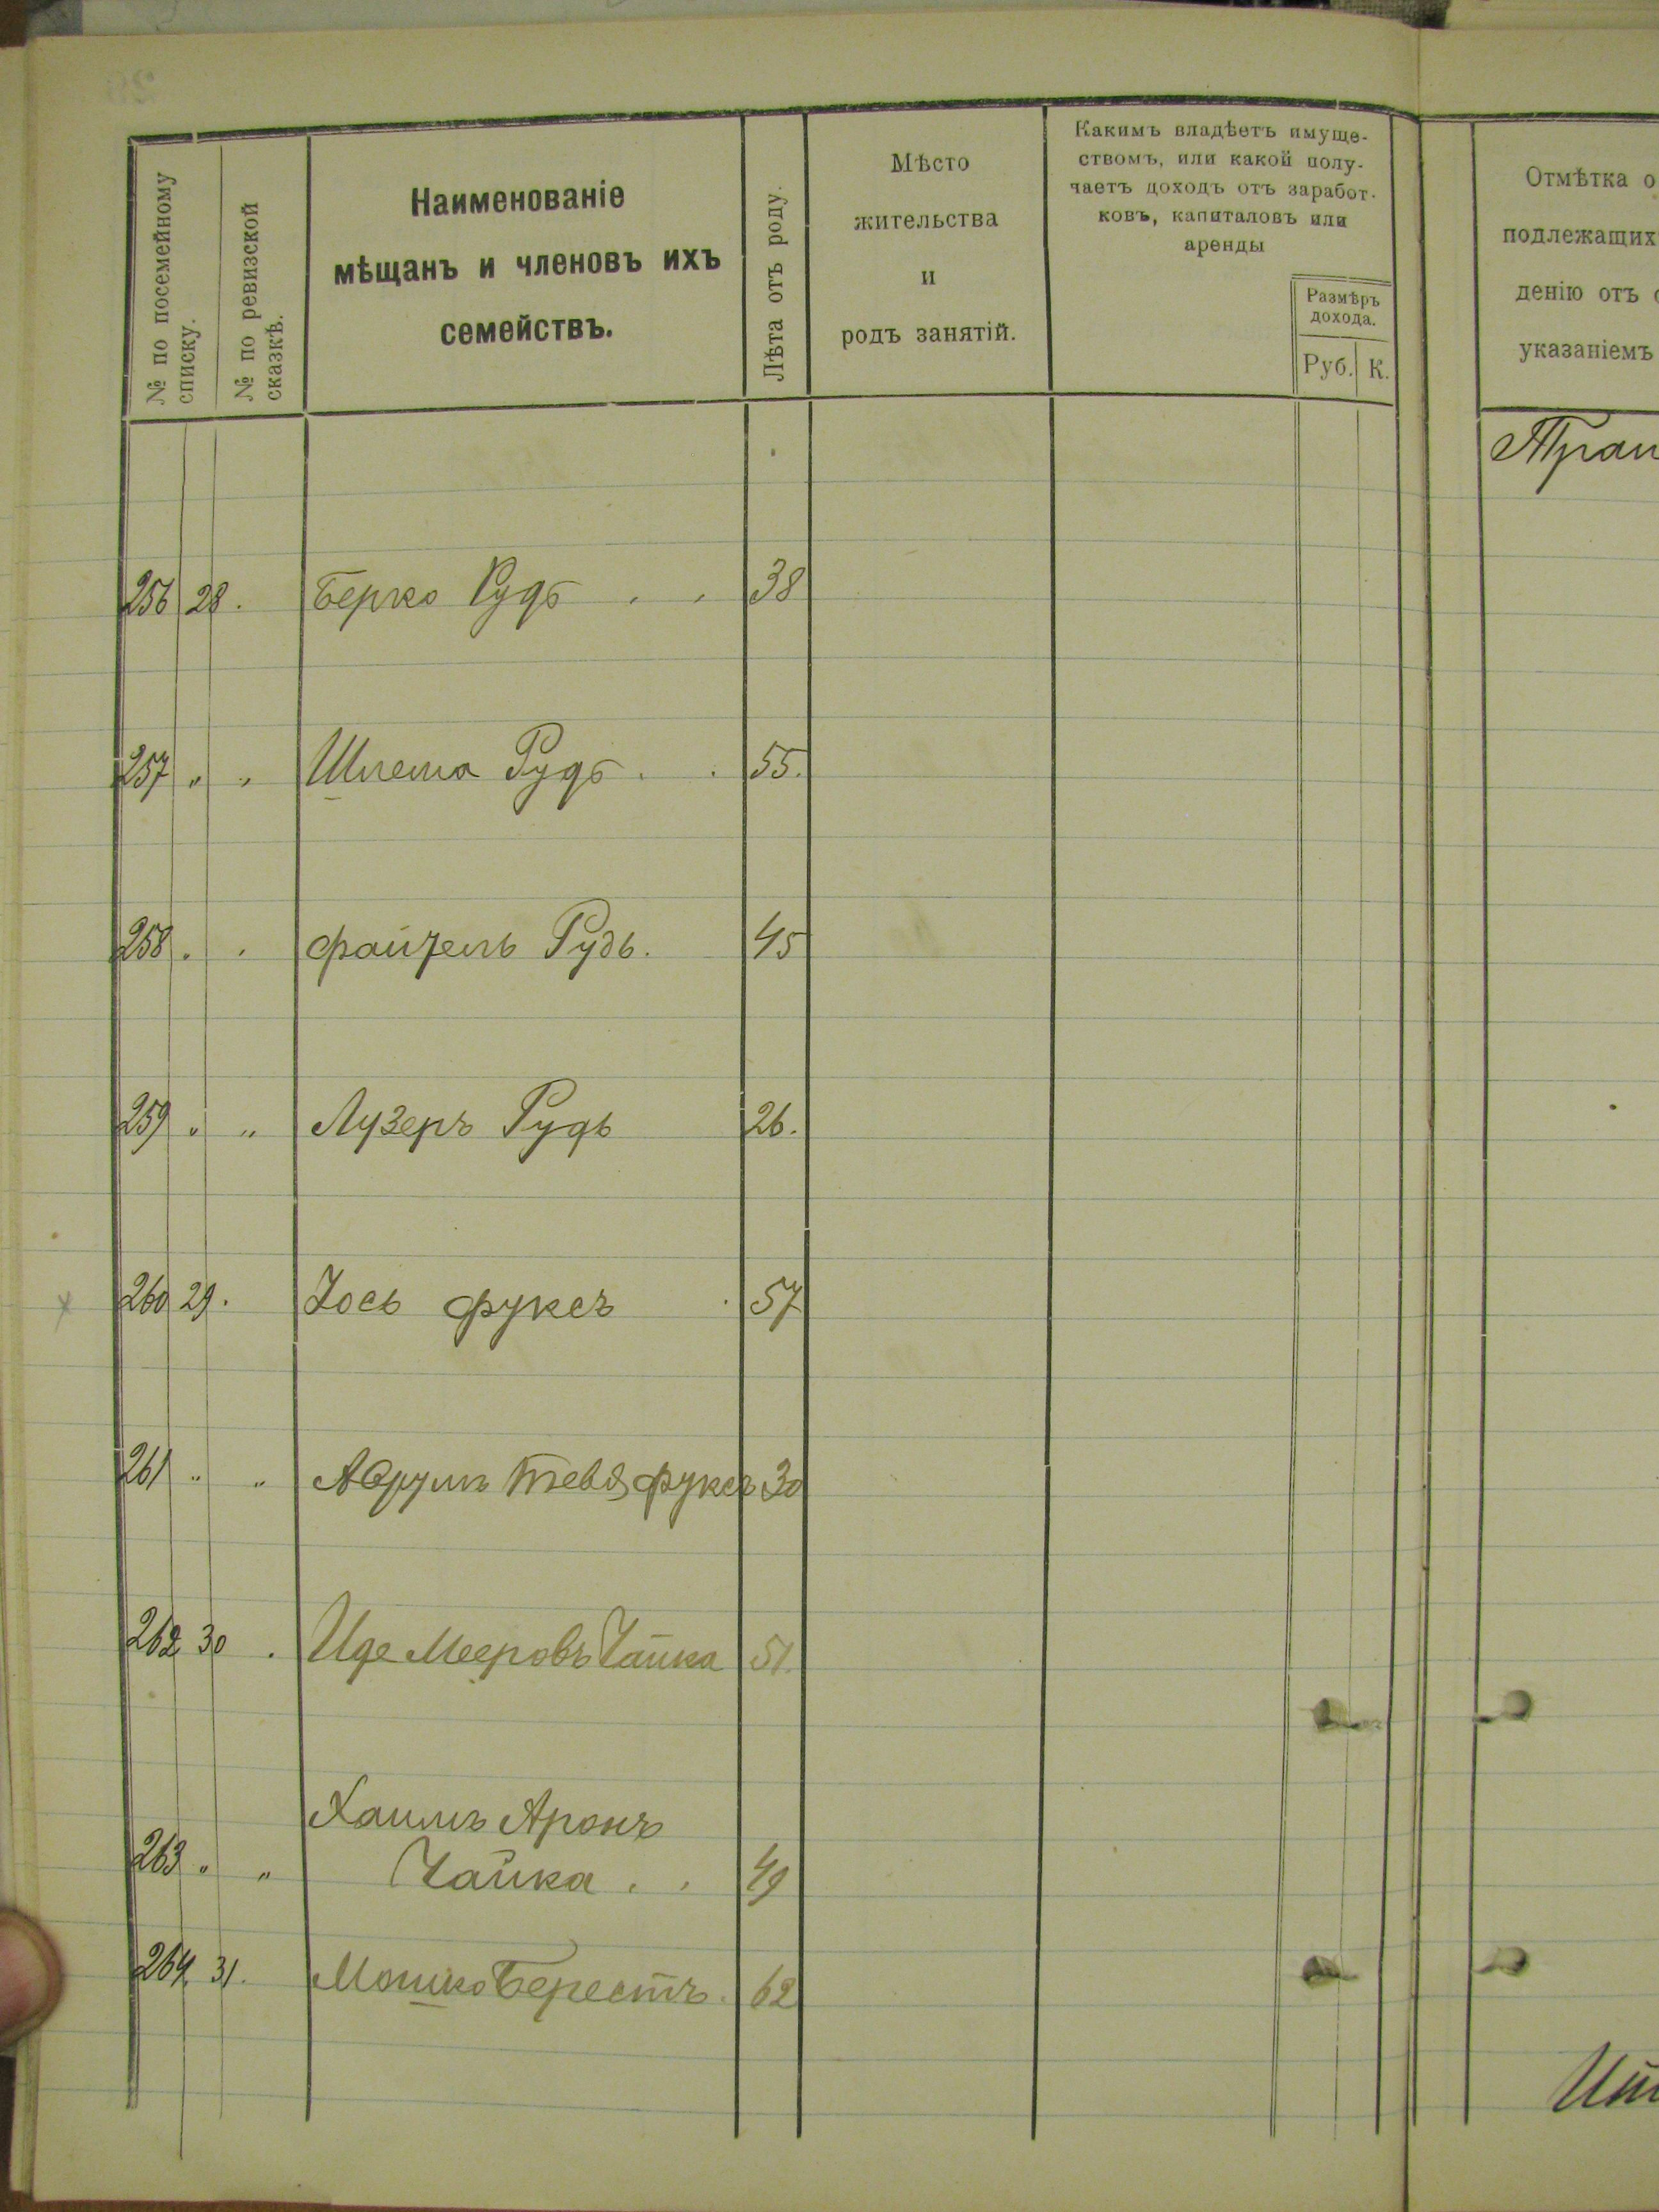 № по посемейному
списку.
№ по ревизской
сказкѣ.
Наименованіе
мѣщанъ и членовъ ихъ
семействъ.
Лѣта отъ роду.
Мѣсто
жительства
и
родъ занятій.
Какимъ владѣетъ имуще-
ствомъ, или какой полу-
чаетъ доходъ отъ заработ-
ковъ, капиталовъ или
аренды
Размѣръ
дохода.
Руб. К.
Отмѣтка о
подлежащих
денію отъ
указаніемъ
Тран
256 28. Берко Рудь . . 38
257 " " Шлема Рудь . . 55.
258 . . Файзель Рудь. 45
259 " " Лузеръ Рудь 26.
260 29. Іось Фуксъ . 57
261 " " Аврумъ Тевя Фуксъ 30
262 30 . Иде Мееровъ Чайка 51.
Хаимъ Аронъ
263 " " Чайка . . 49
264 31. Мошко Берестъ. 62
Ит